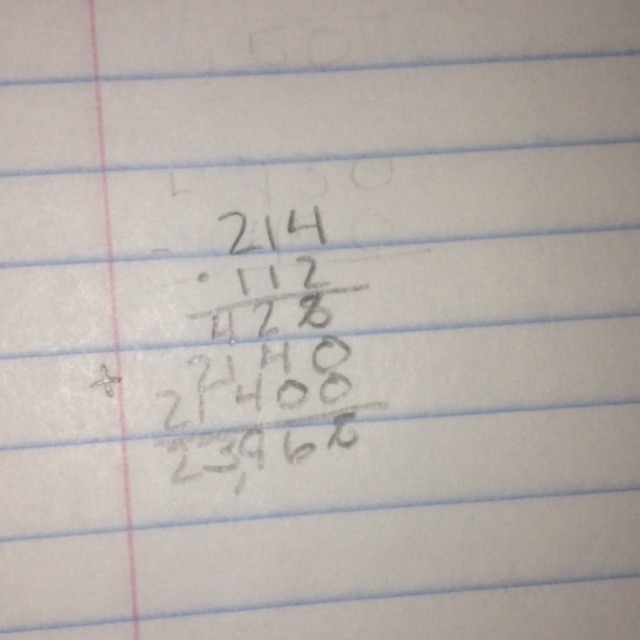 214
·112
428
2140
+ 21400
23,968